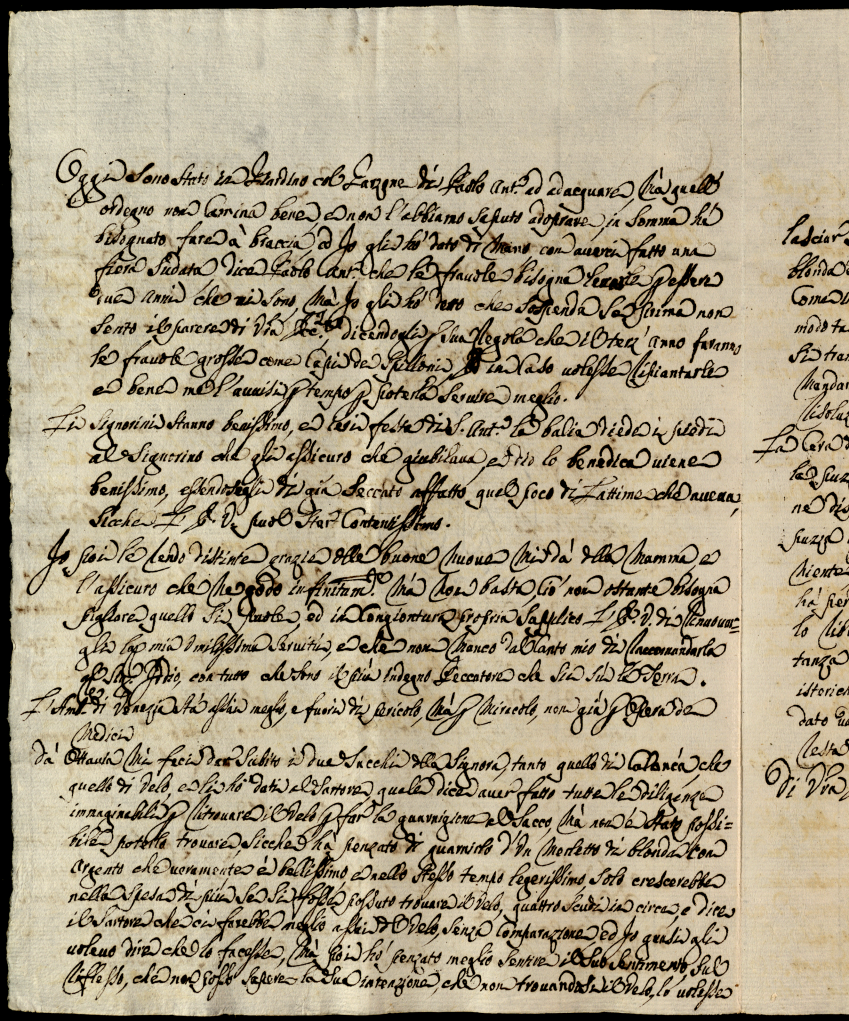 Oggi sono stato in Giardino col Garzone di Paolo Ant.o ad adacquare, Mà quell
ordegno non Camina bene, e non l'abbiamo saputo adoprare, in somma hà
bisognato fare à braccia, ed Jo gli hò dato di Mano, con averci fatto una
fiera sudata, dice Paolo Ant.o che le fravole bisogna levarle p essere
due anni che vi sono, Mà Jo gli hò detto che sospenda se prima non
sento il parere di V.ra Ecc.za dicendogli p sua Regola che il terz' anno faranno
le fravole grosse come Capi de Spilloni, in Caso volesse Ripiantarle
e bene me l'avvisi p tempo p poterla servire meglio.
Li Signorini stanno benissimo, e la festa di S. Ant.o la balia diede i piedi
al Signorino che gli assicuro che giubilava, e Dio lo benedica viene
benissimo, essendosegli di già seccato affatto quel poco di Lattime che aveva,
sicche L' E. V. puol star Contentissimo.
Jo poi le rendo distinte grazie delle buone Nuove Mi dà della Mamma, e
l'assicuro che Ne godo infinitam.te Mà Non basta, Ciò non ostante bisogna
pigliare quello si puole, ed in Congiontura propria supplico L' E. V. di Rinovar=
gli la mia Umilissima servitù, e che non Manco dal Canto mio di Raccomandarla
Iddio, con tutto che sono il più indegno Peccatore che sia sù la Terra.
L' Amb.re di Venezia stà assai meglio, e fuori di pericolo, Mà p Miracolo, non già p Opera de
Medici
Da Ottavia Mi feci dar subito i due Sacchi della Signora, tanto quello di che
quello di Velo, e li hò dati al Sartore, quale dice aver fatto tutte le diligenze
immaginabili p ritrovare il Velo p far la guarnigione al Sacco, Mà non è stato possi=
bile poterlo trovare, sicche hà penzato di guarnirlo d'Un Merletto di blonda con
Argento che veramente è bellissimo e nello stesso tempo legerissimo, solo crescerebbe
nella spesa di più se si fosse possuto trovare il Velo, quattro scudi in circa, e dice
il Sartore che ci farebbe meglio assai del Velo, senza Comparazione ed Jo quasi gli
volevo dire che lo facesse, Mà poi hò penzato meglio sentire il suo sentimento sul
Riflesso, che non posso sapere la sua intenzione, che non trovandosi il Velo, lo volesse
lasciar
blonda
Come
modo
si
Mandar
La Cera
ne
Niente
hà
lo
tanza
dato